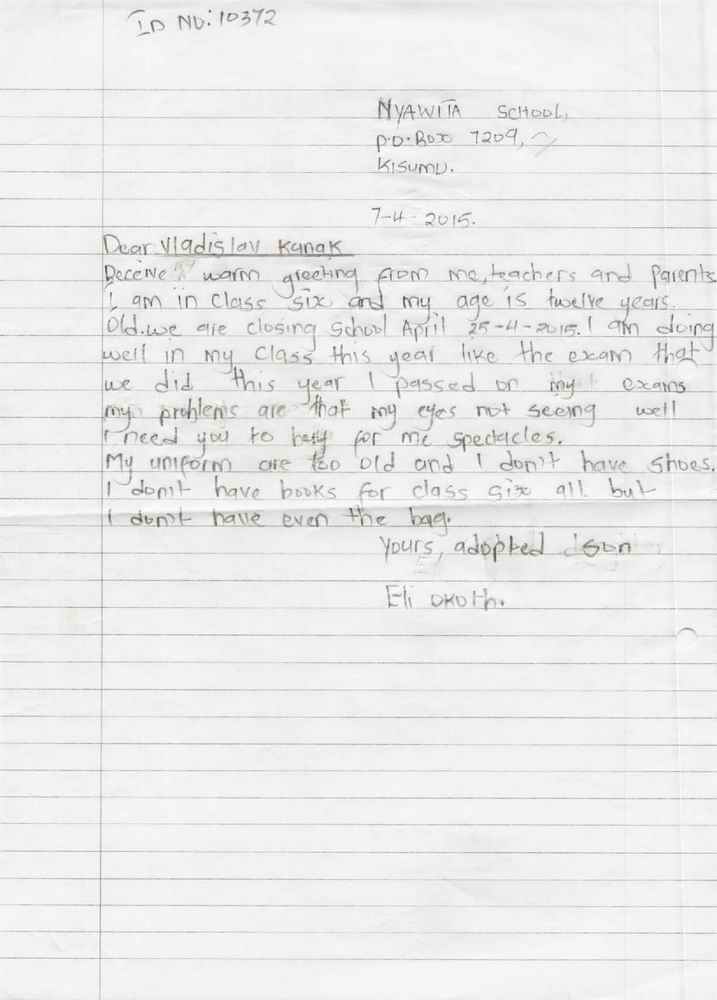 ID NO: 10372
NYAWITA SCHOOL,
P.O. BOX 7209,
KISUMU.
7-4-2015.
Dear Vladislav Kanak
Receive warm greeting from me, teachers and parents
I am in class six and my age is twelve years.
Old. we are closing School April 25-4-2015. I am doing
well in my class this year like the exam that
we did this year I passed on my exams
my problems are that my eyes not seeing well
I need you to for me spectacles.
My uniform are too old and I don't have shoes.
I don't have books for class six all but
I don't have even the bag.
Yours, adopted son
Eli Okoth.